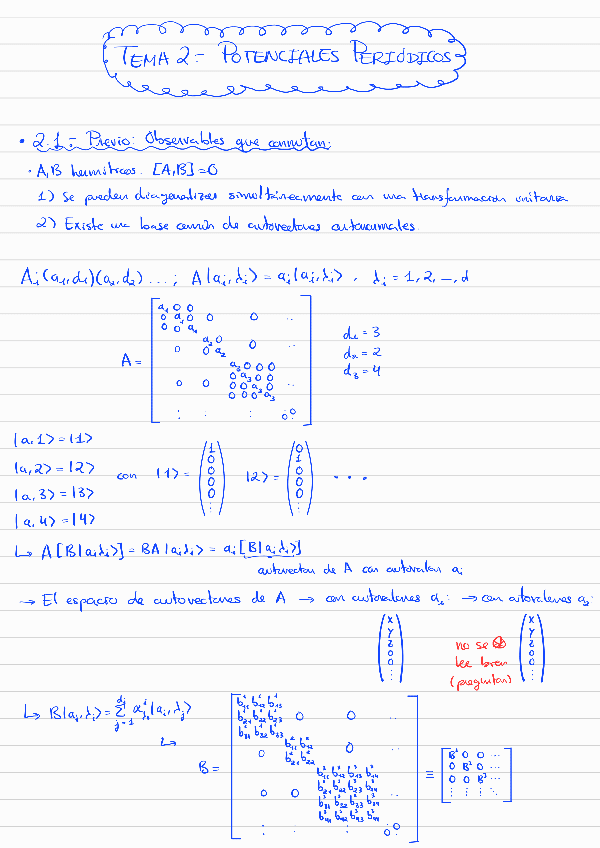 TEMA 2.- POTENCIALES PERIÓDICOS
• 2.1.- Previo: Observables que conmutan:
· A,B hermíticos. [A,B]=0
1) Se pueden diagonalizar simultáneamente con una transformación unitaria
2) Existe una base común de autovectores autonormales.
A; (a₁,d₁)(a₂,d₂) ...; A|aᵢ,λᵢ⟩ = aᵢ|aᵢ,λᵢ⟩, λᵢ = 1,2,...,d
A =
a₁ 0 0
0 a₁ 0 0 0 ..
0 0 a₁
a₂ 0
0 0 a₂ 0
a₃ 0 0 0
0 a₃ 0 0
0 0 0 0 a₃ 0 ..
0 0 0 a₃
: : : ⋱
d₁ = 3
d₂ = 2
d₃ = 4
|a,1⟩ = |1⟩
|a,2⟩ = |2⟩
|a,3⟩ = |3⟩
|a,4⟩ = |4⟩
con |1⟩ = (1 0 0 0 0 :) |2⟩ = (0 1 0 0 0 :) . . .
↳ A[B|aᵢλᵢ⟩] = BA|aᵢλᵢ⟩ = aᵢ[B|aᵢλᵢ⟩]
autovector de A con autovalor aᵢ
→ El espacio de autovectores de A → con autovalores a₁: → con autovalores a₂:
(x y z 0 0 :)
no se
lee bien
(preguntar)
(x y z 0 0 :)
↳ B|aᵢ,λᵢ⟩ = Σ αʲλᵢ|aᵢ,λⱼ⟩
dⱼ
j=1
↳
B =
b¹₁₁ b¹₁₂ b¹₁₃
b¹₂₁ b¹₂₂ b¹₂₃ 0 0 ..
b¹₃₁ b¹₃₂ b¹₃₃
b²₁₁ b²₁₂
0 b²₂₁ b²₂₂ 0
b³₁₁ b³₁₂ b³₁₃ b³₁₄
b³₂₁ b³₂₂ b³₂₃ b³₂₄
0 0 b³₃₁ b³₃₂ b³₃₃ b³₃₄ ..
b³₄₁ b³₄₂ b³₄₃ b³₄₄
: : : ⋱
≡
B¹ 0 0 ...
0 B² 0 ...
0 0 B³ ...
: : : ⋱